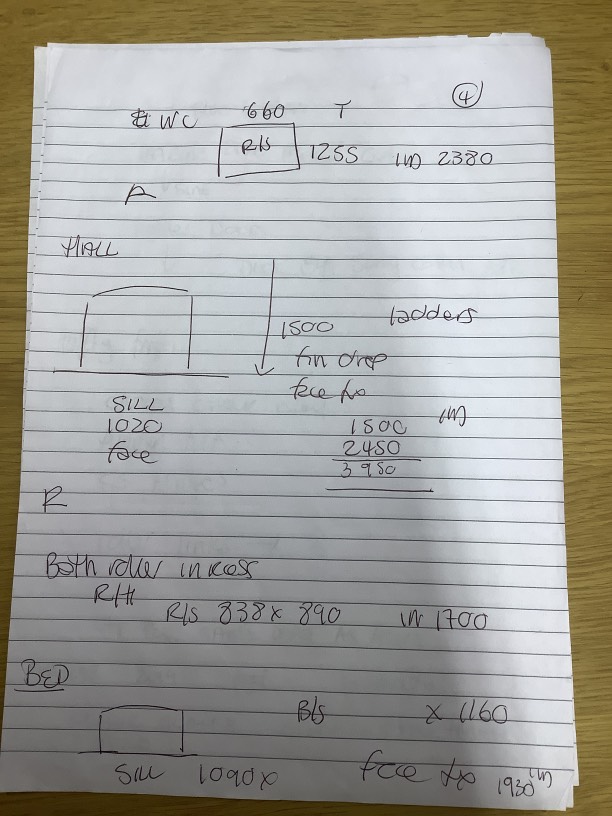 ④
WC 660 T
R/S 1255 IN 2380
A
HALL
1500 ladders
fin drop
face fix
SILL
1020 1500 IN
face 2450
3950
R
Both roller in recess
R/H
R/S 838 x 890 IN 1700
BED
B/S x 1160
SILL 1090 x face fix 1930 IN